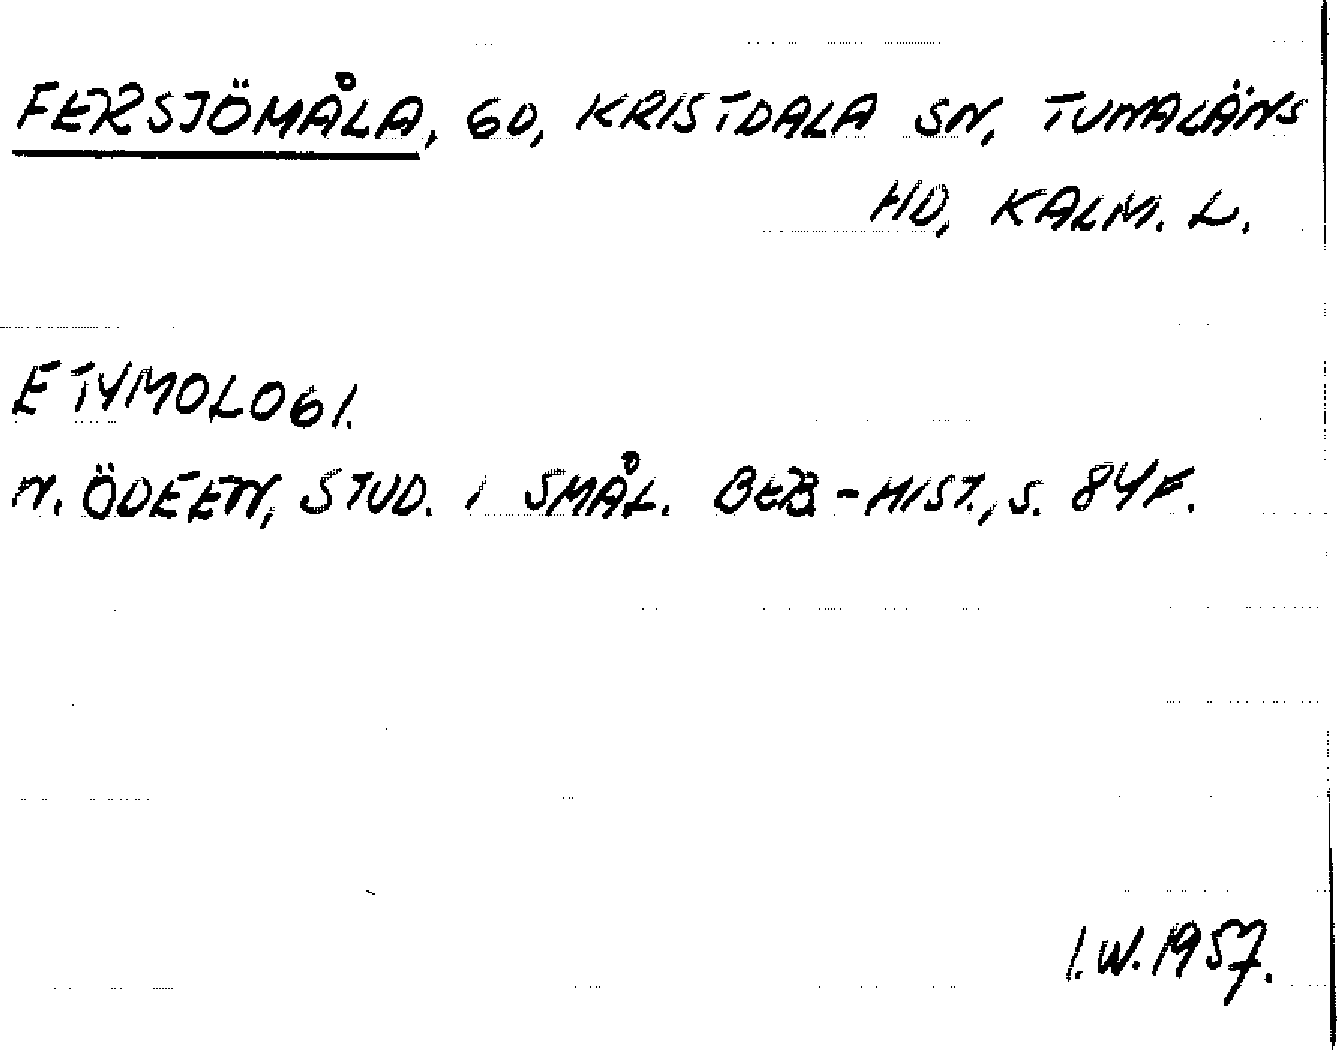 FERSJÖMÅLA, GD, KRISTDALA SN, TUNALÄNS
HD, KALM. L.
ETYMOLOGI.
N. ÖDEEN, STUD. I SMÅL. BEB-HIST., S. 84F.
I.W. 1957.